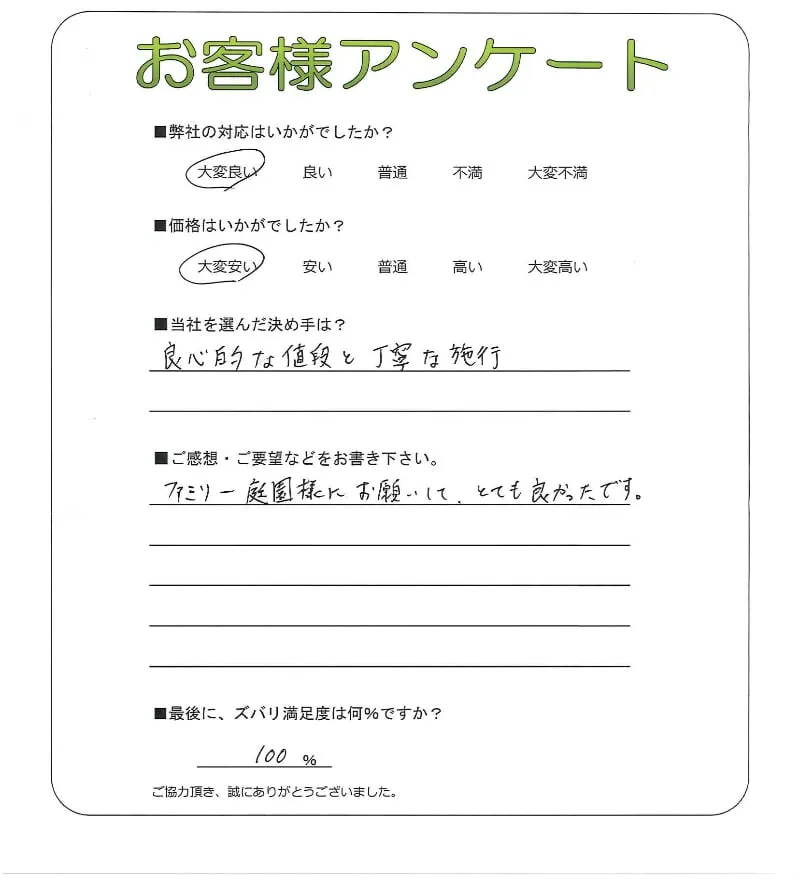 お客様アンケート
■弊社の対応はいかがでしたか？
大変良い 良い 普通 不満 大変不満
■価格はいかがでしたか？
大変安い 安い 普通 高い 大変高い
■当社を選んだ決め手は？
良心的な値段と丁寧な施行
■ご感想・ご要望などをお書き下さい。
ファミリー庭園様にお願いして、とても良かったです。
■最後に、ズバリ満足度は何%ですか？
100 %
ご協力頂き、誠にありがとうございました。